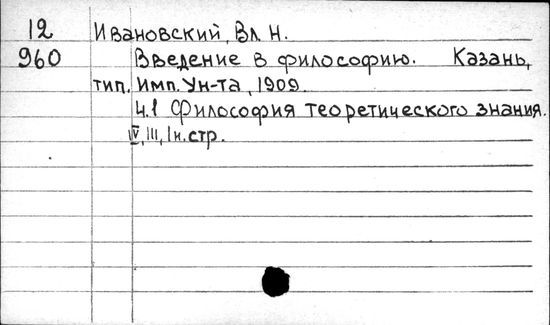 12 Ивановский, Вл. Н.
960 Введение в философию. Казань,
тип. Имп. Ун-та, 1909.
ч.1 Философия теоретического знания.
IV, III, I н. стр.